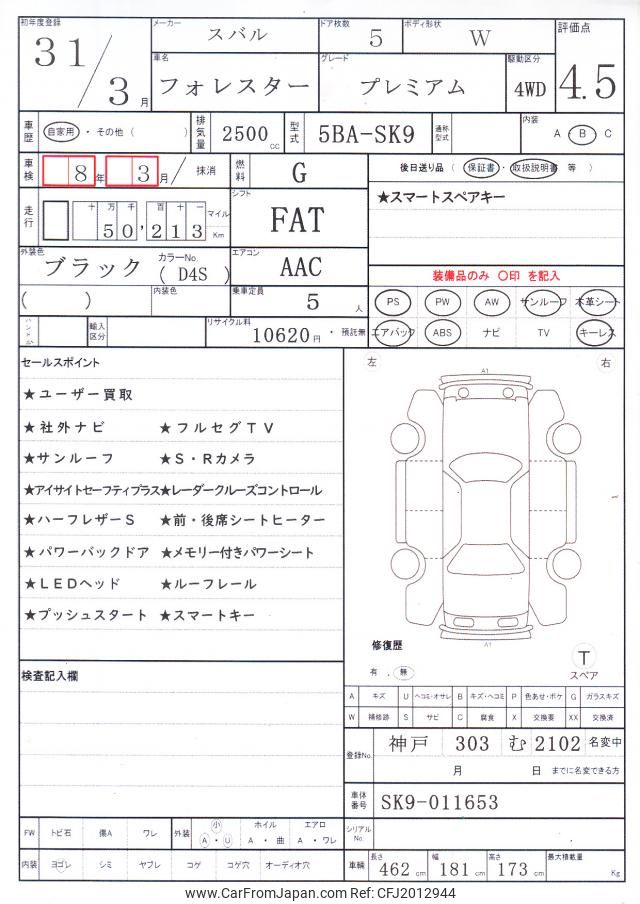 初年度登録 メーカー ドア枚数 ボディ形状 評価点
31/3月 スバル 5 W 4.5
車名 グレード 駆動区分
フォレスター プレミアム 4WD
車歴 自家用・その他( ) 排気量 2500cc 型式 5BA-SK9 通称型式 内装 A・B C
車検 8年 3月/抹消 燃料 G 後日送り品(保証書・取扱説明書 等)
走行 十万千百十一 マイル シフト ★スマートスペアキー
50,213 Km FAT
外装色 カラーNo. エアコン 装備品のみ ○印 を記入
ブラック (D4S) AAC
( ) 内装色 乗車定員 5人 PS PW AW サンルーフ 本革シート
輸入区分 リサイクル料 10620円・預託無 エアバック ABS ナビ TV キーレス
セールスポイント 左 右
A1
★ユーザー買取
★社外ナビ ★フルセグTV
★サンルーフ ★S・Rカメラ
★アイサイトセーフティプラス★レーダークルーズコントロール
★ハーフレザーS ★前・後席シートヒーター
★パワーバックドア ★メモリー付きパワーシート
★LEDヘッド ★ルーフレール
★プッシュスタート ★スマートキー
A1
修復歴
有.無 T
スペア
検査記入欄
A キズ U ヘコミ・オサレ B キズ・ヘコミ P 色あせ・ボケ G ガラスキズ
W 補修跡 S サビ C 腐食 X 交換要 XX 交換済
登録No. 神戸 303 む 2102 名変中
月 日 までに名変できる方
車体番号 SK9-011653
FW トビ石 傷A ワレ 外装 小 A・U ホイル A・曲 エアロ A・ワレ シリアルNo.
内装 ヨゴレ シミ ヤブレ コゲ コゲ穴 オーディオ穴 車輛 長さ 462cm 幅 181cm 高さ 173cm 最大積載量 Kg
www.CarFromJapan.com Ref: CFJ2012944